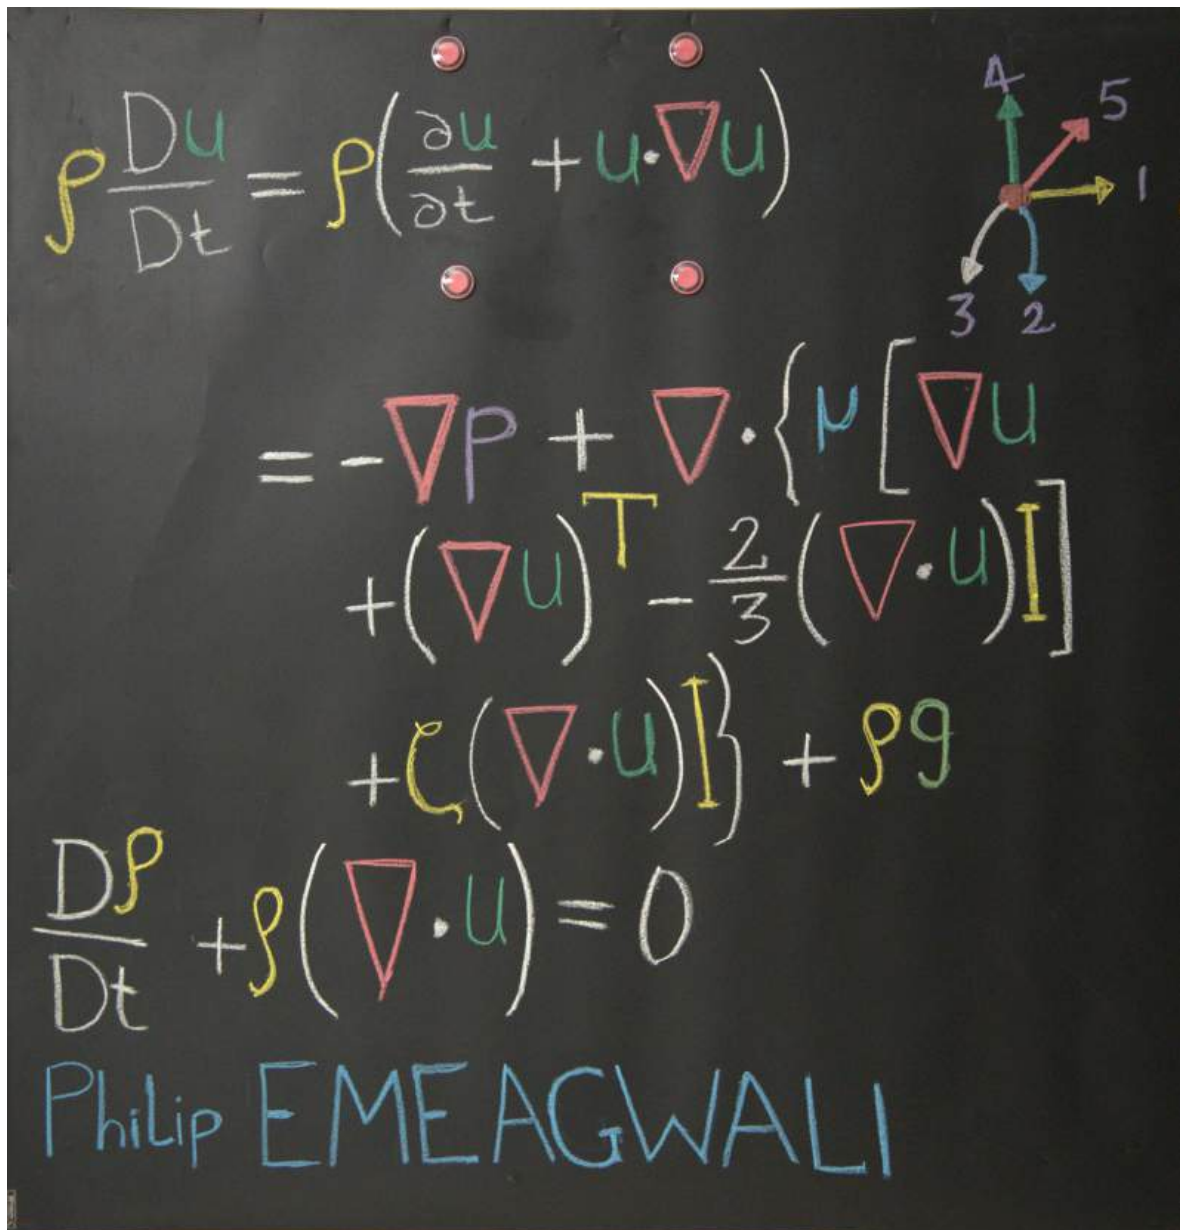 ρ Du/Dt = ρ(∂u/∂t + u·∇u)
4
5
1
3 2
= -∇p + ∇·{μ[∇u
+(∇u)ᵀ - 2/3(∇·u)I]
+ζ(∇·u)I} + ρg
Dρ/Dt + ρ(∇·u) = 0
Philip EMEAGWALI